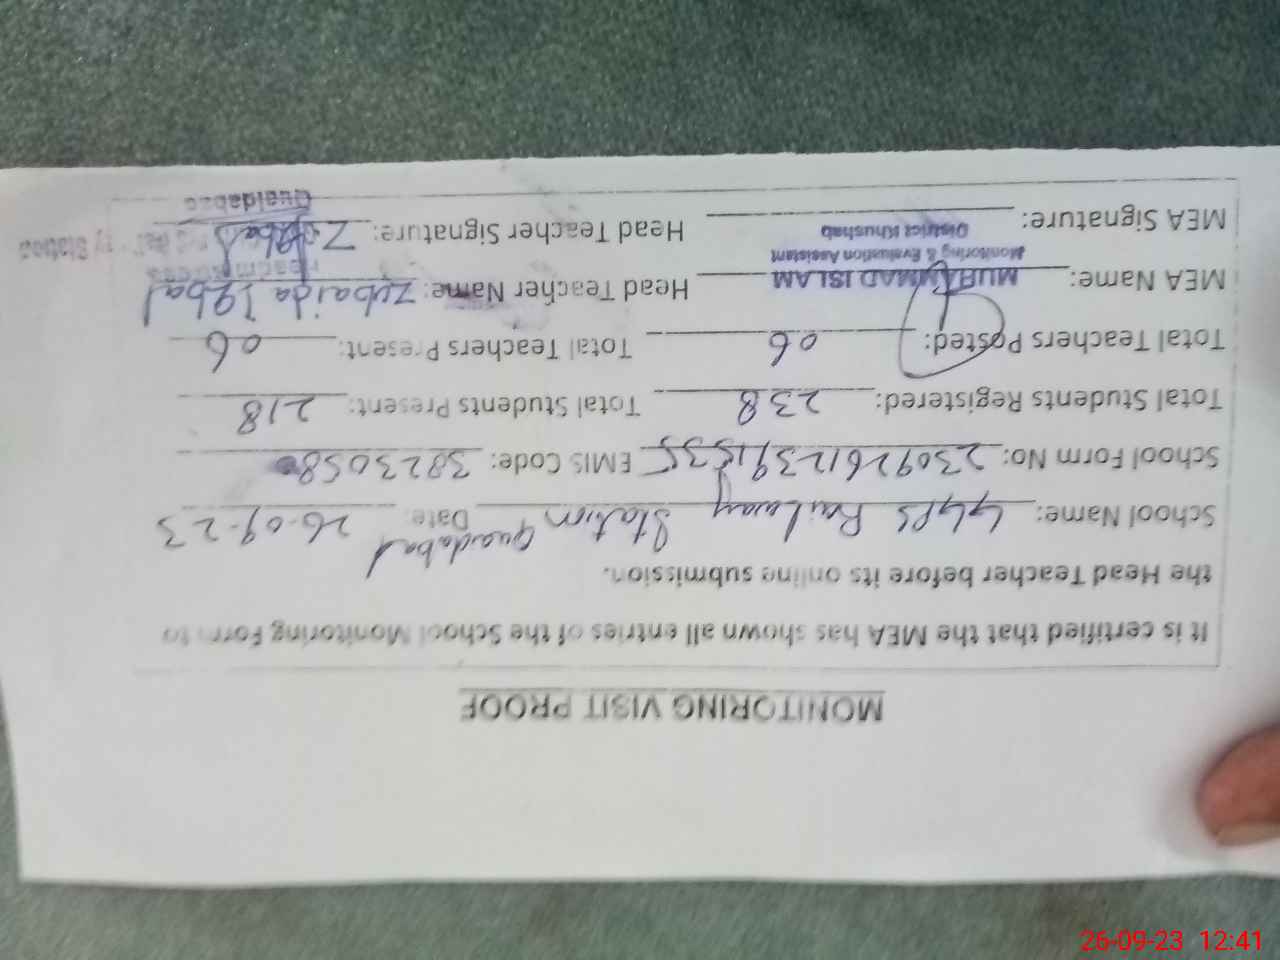 MONITORING VISIT PROOF
It is certified that the MEA has shown all entries of the School Monitoring Form to
the Head Teacher before its online submission.
School Name: GGPS Railway Station Quaidabad Date: 26-09-23
School Form No: EMIS Code: 38230580
Total Students Registered: 238 Total Students Present: 218
Total Teachers Posted: 06 Total Teachers Present: 06
MEA Name: MUHAMMAD ISLAM Head Teacher Name: Zubaida Iqbal
Monitoring & Evaluation Assistant
District Khushab
MEA Signature: Head Teacher Signature: Z Iqbal
Station
Quaidabad
26-09-23 12:41